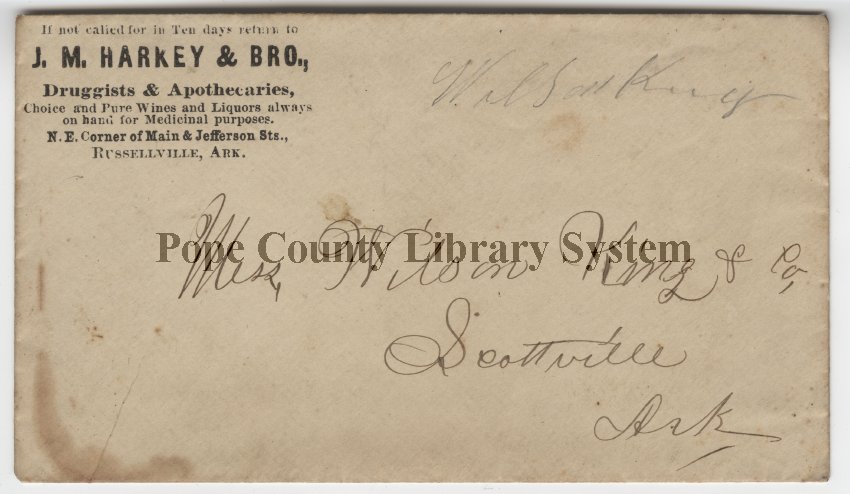 If not called for in Ten days return to
J. M. HARKEY & BRO.,
Druggists & Apothecaries,
Choice and Pure Wines and Liquors always
on hand for Medicinal purposes.
N. E. Corner of Main & Jefferson Sts.,
RUSSELLVILLE, ARK.
Wilson King
Mess, Wilson King & Co,
Pope County Library System
Scottville
Ark